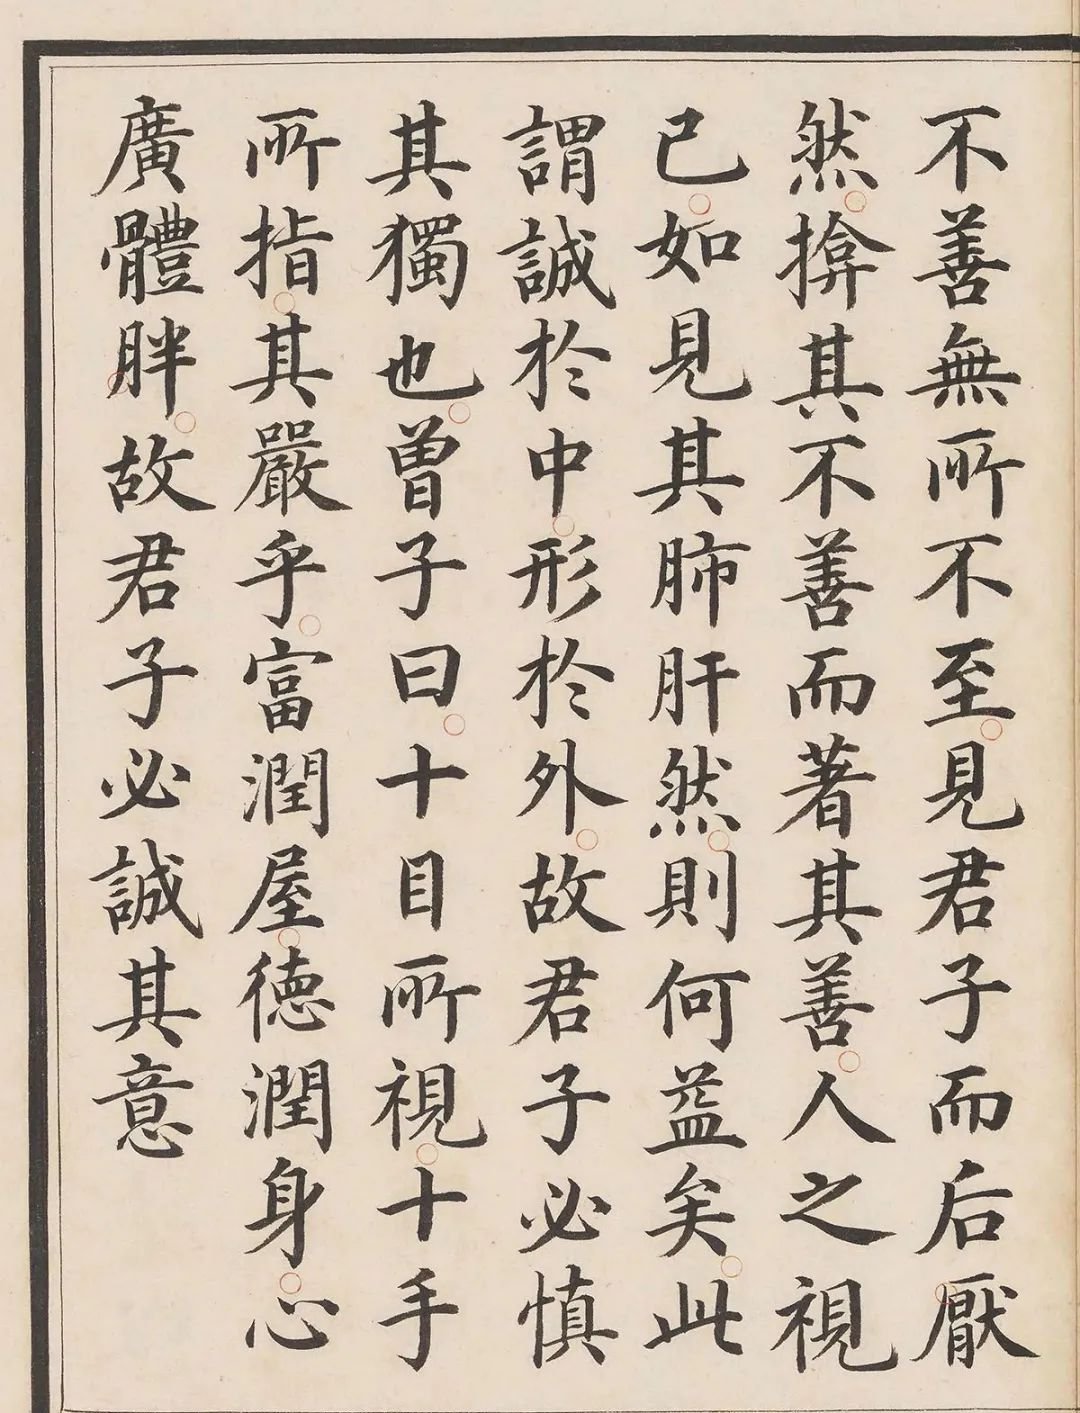 不善無所不至見君子而后厭
然揜其不善而著其善人之視
己如見其肺肝然則何益矣此
謂誠於中形於外故君子必慎
其獨也曾子曰十目所視十手
所指其嚴乎富潤屋徳潤身心
廣體胖故君子必誠其意